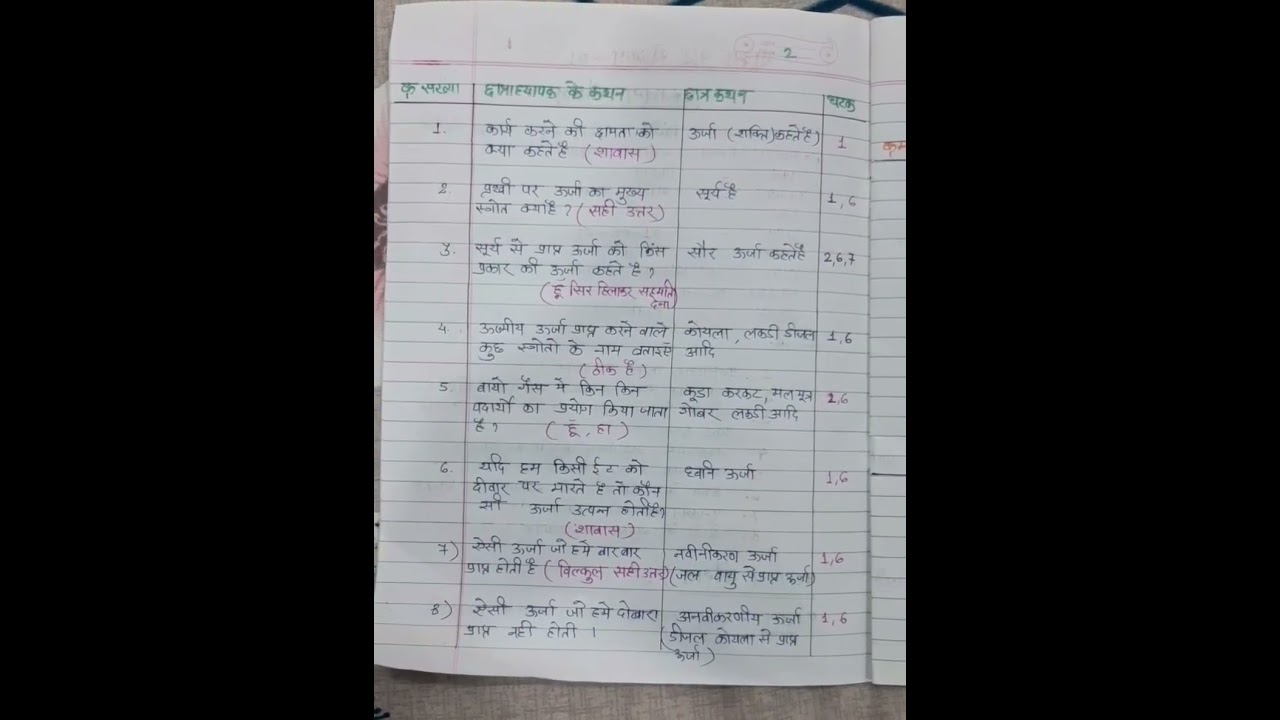 2
क्र संख्या छात्राध्यापक के कथन छात्र कथन घटक
1. कार्य करने की क्षमता को ऊर्जा (शक्ति) कहते है 1
क्या कहते है (शावास)
2. प्रथ्वी पर ऊर्जा का मुख्य सूर्य है 1,6
स्त्रोत क्या है ? (सही उत्तर)
3. सूर्य से प्राप्त ऊर्जा को किस सौर ऊर्जा कहते है 2,6,7
प्रकार की ऊर्जा कहते है ?
(हूँ सिर हिलाकर सहमति
देना)
4. ऊष्मीय ऊर्जा प्राप्त करने वाले कोयला, लकडी डीजल 1,6
कुछ स्त्रोतो के नाम बताइये आदि
(ठीक है)
5. बायो गैस मे किन किन कूडा करकट, मल मूत्र 2,6
पदार्थो का प्रयोग किया जाता गोबर लकडी आदि
है ? (हूँ, हा)
6. यदि हम किसी ईट को ध्वनि ऊर्जा 1,6
दीवार पर मारते है तो कौन
सी ऊर्जा उत्पन्न होती है ?
(शावास)
7) ऐसी ऊर्जा जो हमे बार बार नवीनीकरण ऊर्जा 1,6
प्राप्त होती है (बिल्कुल सही उत्तर) (जल वायु से प्राप्त ऊर्जा)
8) ऐसी ऊर्जा जो हमे दोबारा अनवीकरणीय ऊर्जा 1,6
प्राप्त नही होती । (डीजल कोयला से प्राप्त
ऊर्जा)